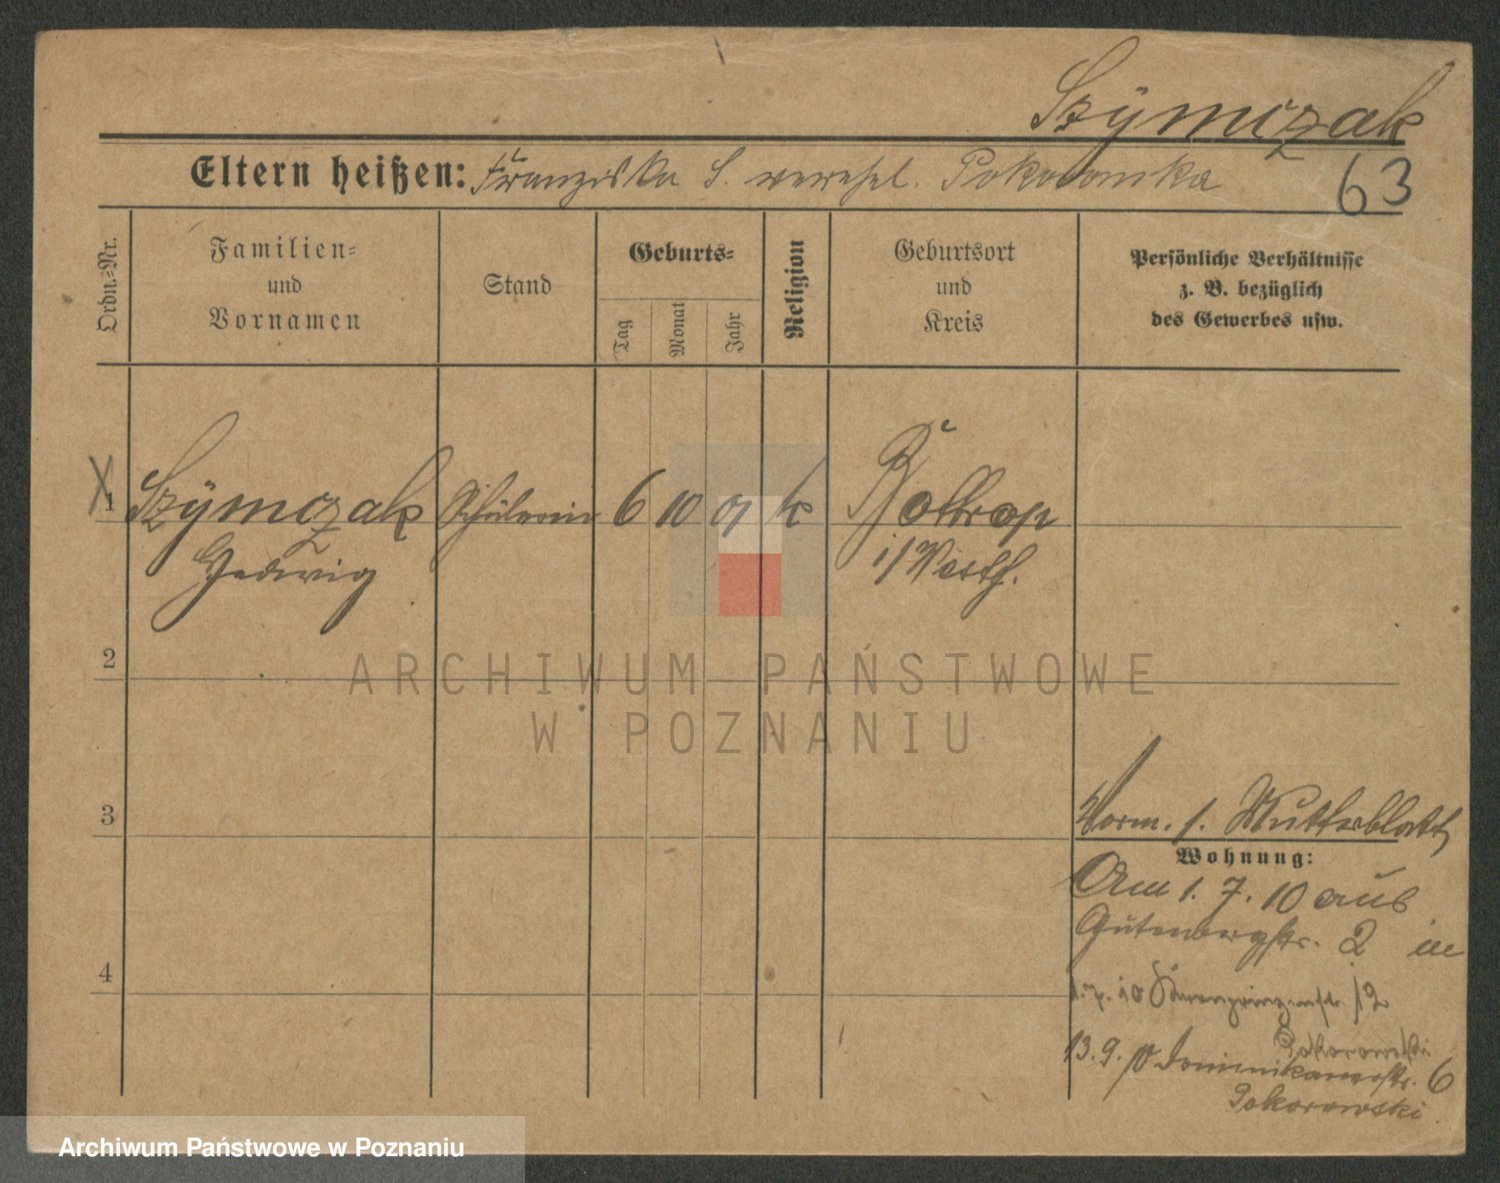 Szÿmczak
Eltern heißen: Franziska S. verehel. Pokorowska
63
Ordn.=Nr.
Familien=
und
Vornamen
Stand
Geburts=
Tag
Monat
Jahr
Religion
Geburtsort
und
Kreis
Persönliche Verhältnisse
z. B. bezüglich
des Gewerbes usw.
X
1 Szÿmczak Schülerin 6 10 01 k Bottrop
Hedwig i/Westf.
2
3
4
Vorm. s. Mutterblatt
Wohnung:
Am 1. 7. 10 aus
Gutenbergstr. 2 in
1. 7. 10 Kronprinzenstr. 12
Pokorowski
13. 9. 10 Dominikanerstr. 6
Pokorowski
ARCHIWUM PAŃSTWOWE
W POZNANIU
Archiwum Państwowe w Poznaniu